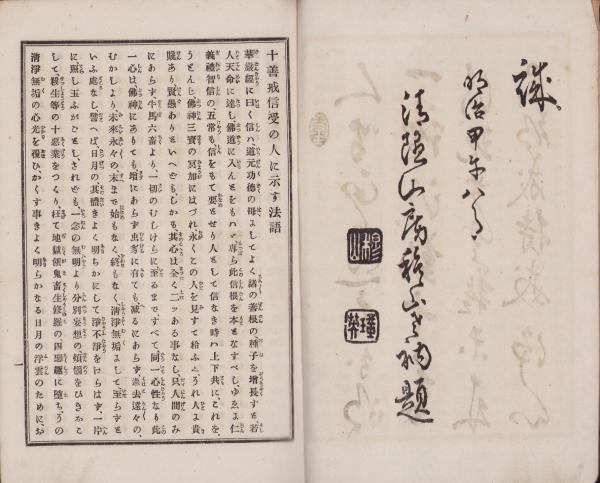 誠
明治甲午八月
穆山
瑾英
十善戒信受の人に示す法語
華嚴經に曰く信ハ道元功德の母よしてよく諸の善根の種子を增長すと若
人天命に達し、佛道に入んとをもハヾ專ら此信根を本となすべし、ゆゑよ仁
義禮智信の、五常も信をもて要とせり人として信なき時ハ上下共にこれを、
賤あり賢愚ありといへども、しかも其心は全く二ツある事なし、只人間のみ
にあらず牛馬六畜より、一切のむしけらに至るまですべて同一心性なり此
一心は、佛神にありても、增にあらず虫豸に有ても、减るにあらず過去遠々の、
むかしより未來永々の末まで始もなく終もなく淸淨無垢よして至らずと
いふ處なし譬へば、日月の其體きよく明らかにして淨不淨をはらはず、一片
に照し玉ふがごとし、されども、一念の無明より分別妄想の煩惱をひきおこ
して殺生等の十惡業をつくり、枉て地獄餓鬼畜生修羅の四惡趣に墮ち、うの
淸淨無垢の心光を覆ひかくす事きよく明らかなる日月の浮雲のために、お
一